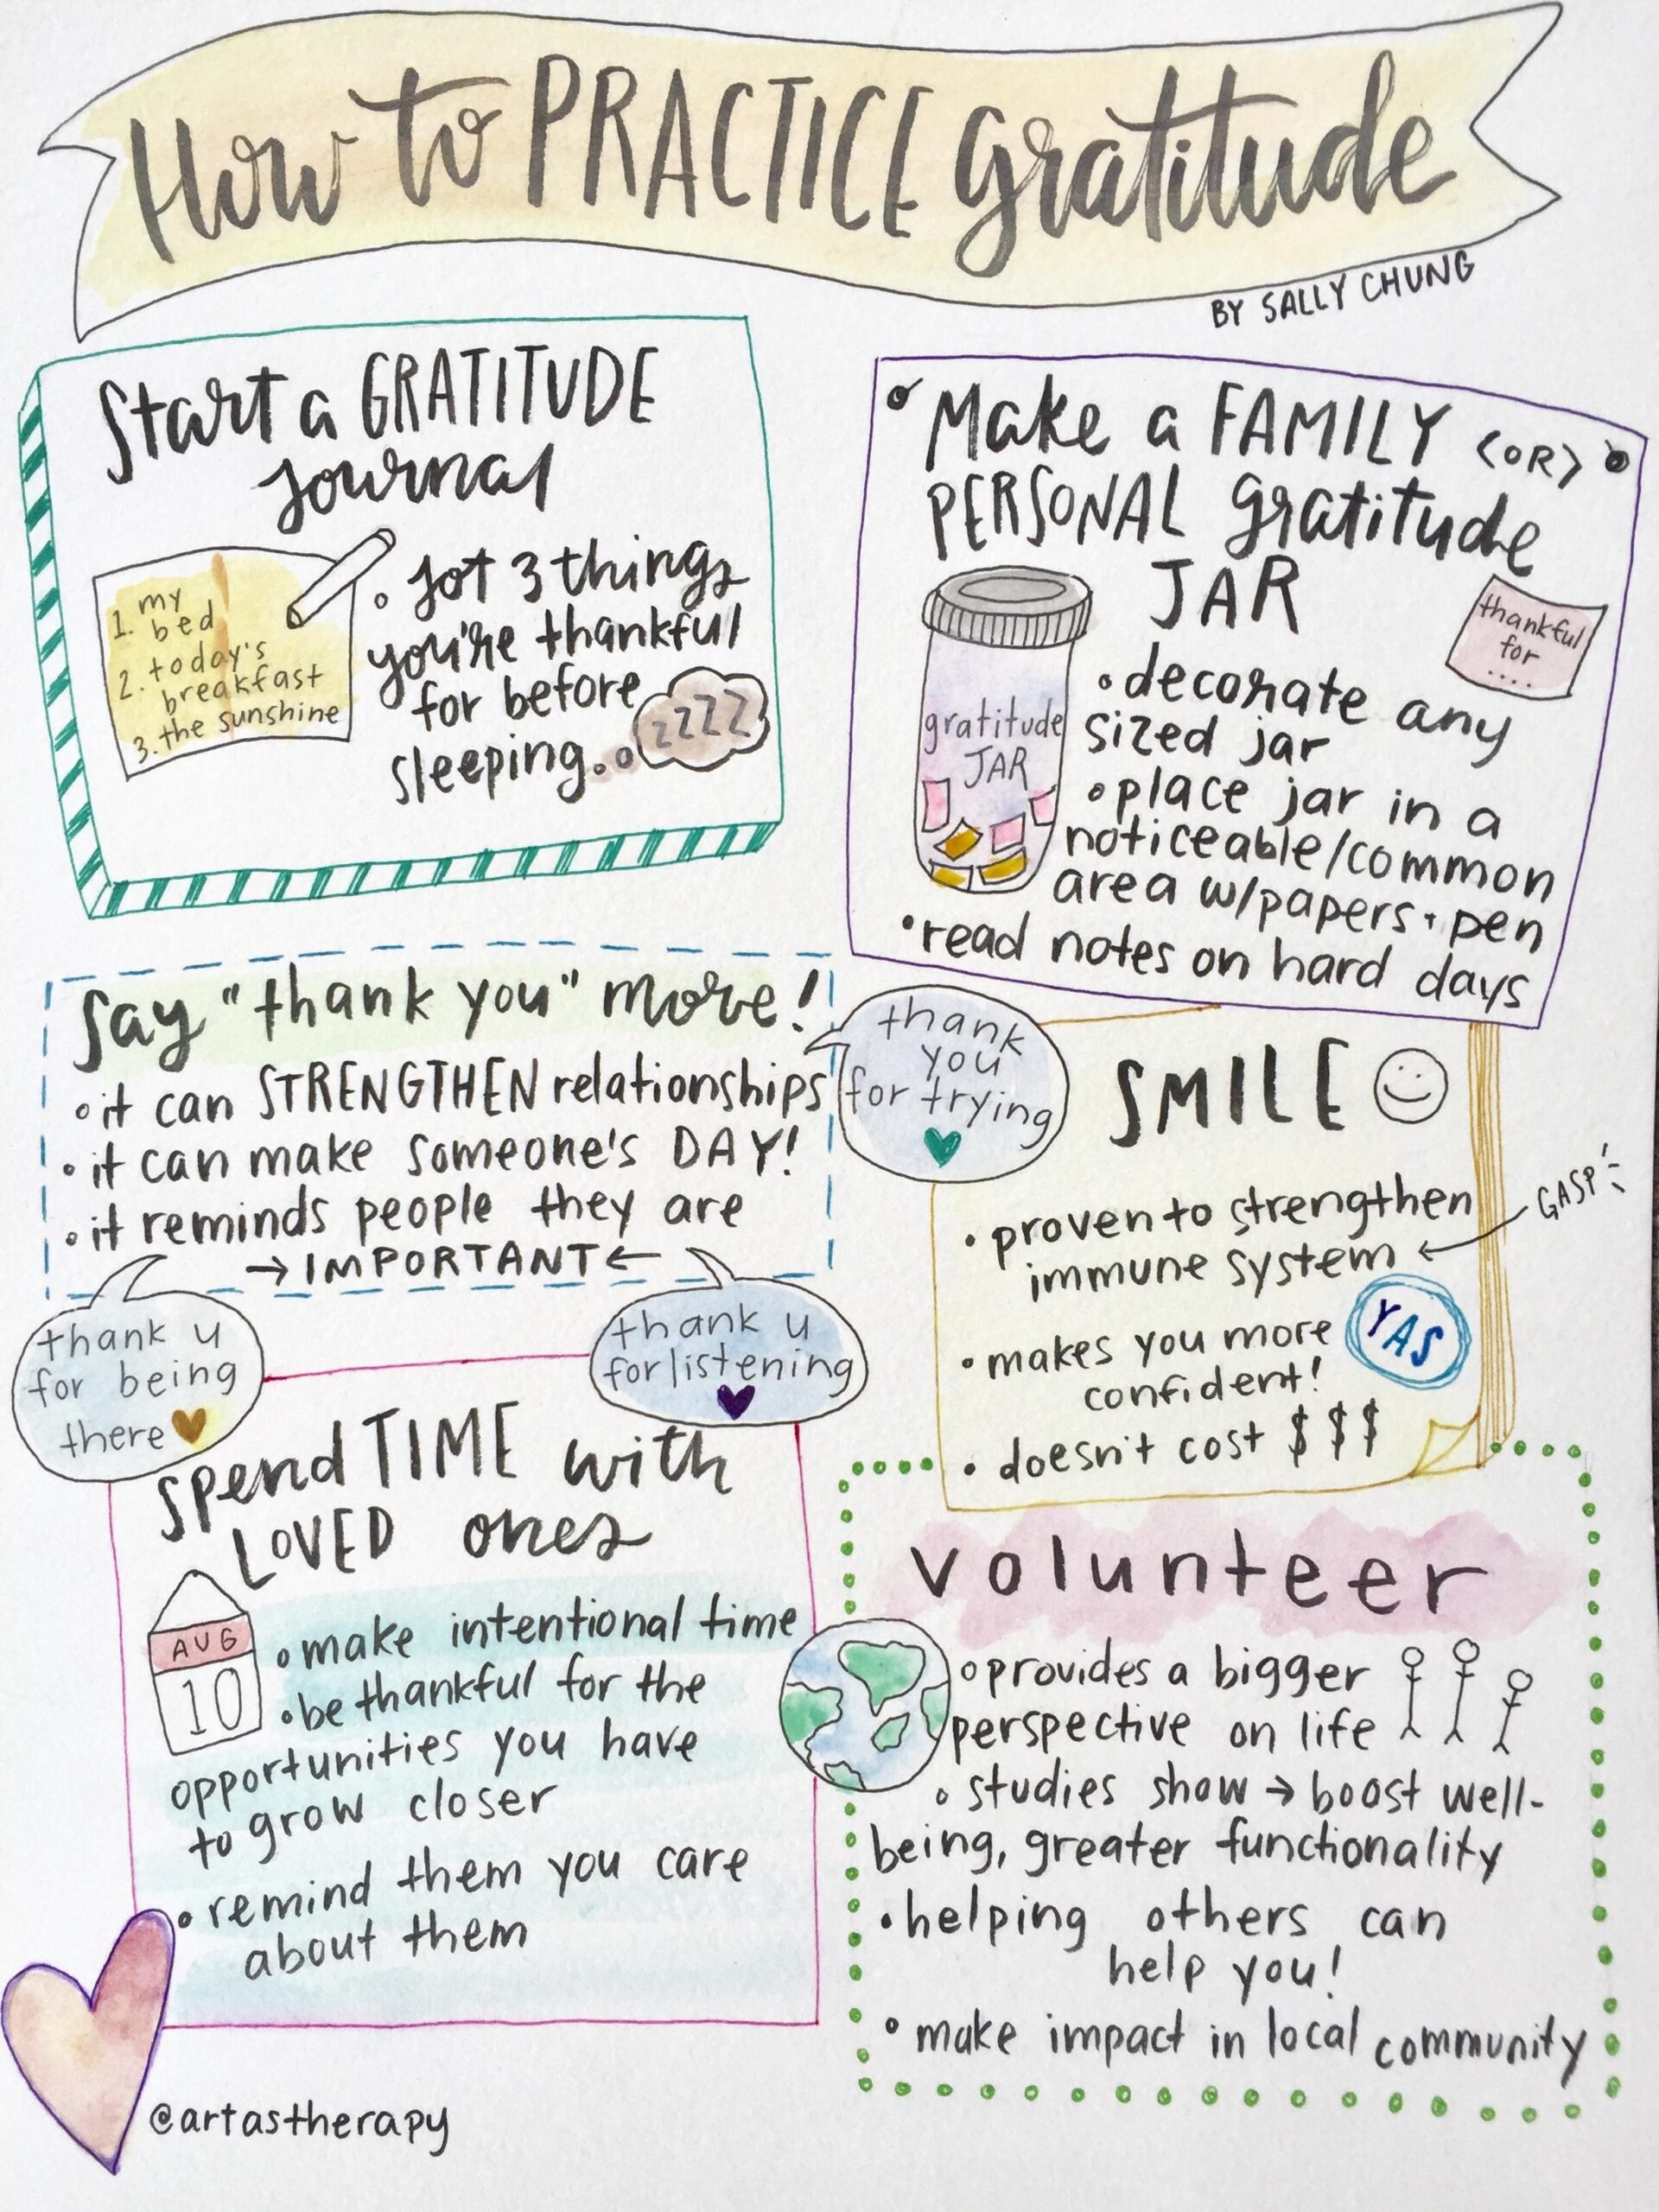 How to PRACTICE gratitude
BY SALLY CHUNG
Start a GRATITUDE
journal
1. my
bed
2. today's
breakfast
3. the sunshine
• jot 3 things
you're thankful
for before
sleeping..
zzzz
Make a FAMILY <OR>
PERSONAL gratitude
JAR
thankful
for
....
gratitude
JAR
• decorate any
sized jar
• place jar in a
noticeable/common
area w/papers + pen
• read notes on hard days
Say "thank you" more!
• it can STRENGTHEN relationships
• it can make someone's DAY!
• it reminds people they are
→ IMPORTANT ←
thank
you
for trying
thank u
for being
there
thank u
for listening
SMILE
• proven to strengthen
immune system ←
GASP
• makes you more
confident!
YAS
• doesn't cost $$$
spend TIME with
LOVED ones
AUG
10
• make intentional time
• be thankful for the
opportunities you have
to grow closer
• remind them you care
about them
volunteer
• provides a bigger
perspective on life
• studies show → boost well-
being, greater functionality
• helping others can
help you!
• make impact in local community
@artastherapy